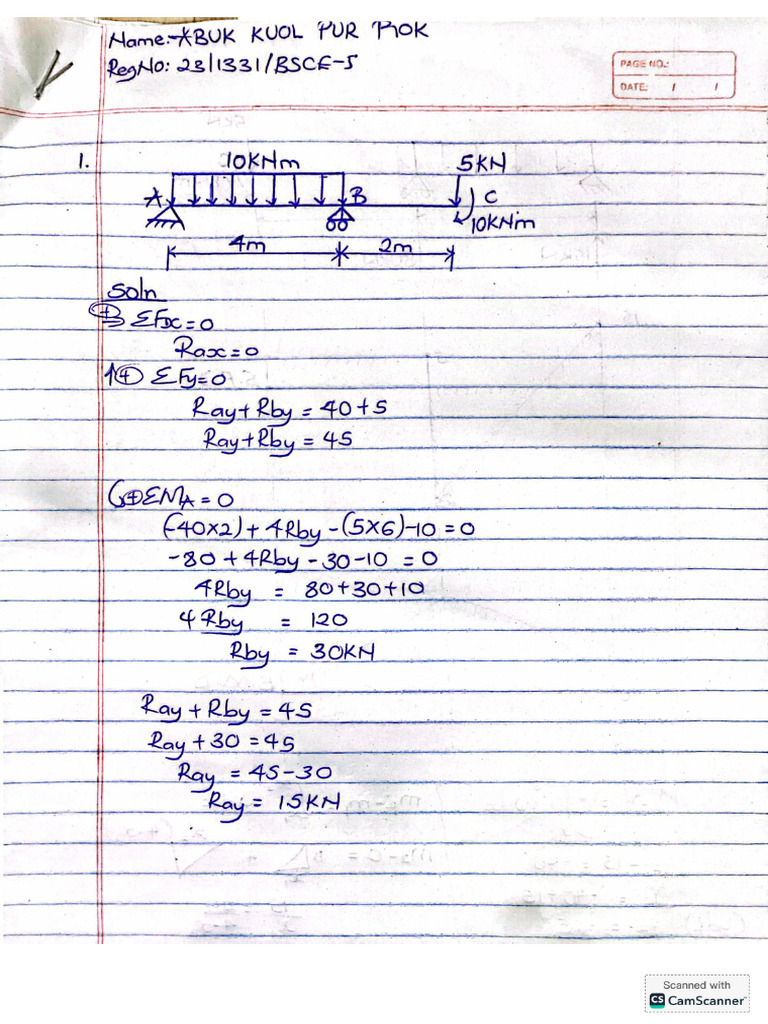 Name:- ABUK KUOL PUR ROK
RegNo: 23/1331/BSCE-S
PAGE NO.:
DATE: / /
1.
10KNm
5KN
A
B
C
10KNm
4m
2m
Soln
+ ΣFx=0
Rax=0
↑+ ΣFy=0
Ray+Rby = 40+5
Ray+Rby = 45
+ΣMA = 0
(-40×2)+4Rby-(5×6)-10=0
-80+4Rby-30-10=0
4Rby = 80+30+10
4Rby = 120
Rby = 30KN
Ray+Rby=45
Ray+30=45
Ray = 45-30
Ray = 15KN
Scanned with
CS CamScanner